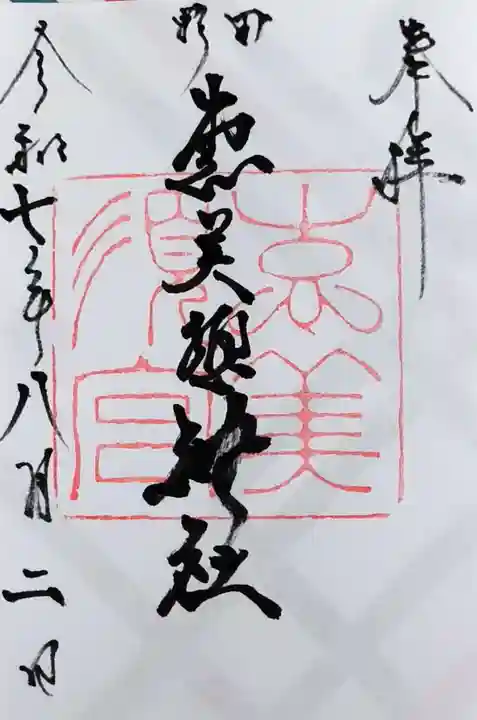 奉拝
野田
恵美須神社
令和七年八月二日
恵美
須宮